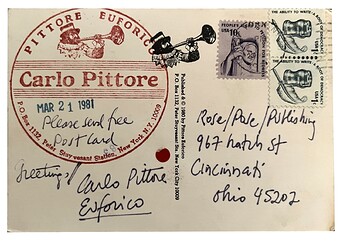 PITTORE EUFORICO
Carlo Pittore
P.O. Box 1132, Peter Stuyvesant Station, New York, N.Y. 10009
MAR 21 1981
Please send free
Post Card
Greetings
Carlo Pittore
Euforico
Published & © 1980 by
P.O. Box 1132, Peter Stuyvesant Sta. New York City 10009
USA 10c
THE ABILITY TO WRITE
USA 1c
THE ABILITY TO WRITE
USA 1c
Rose/Pose/Publishing
967 Hatch St
Cincinnati
Ohio 45202